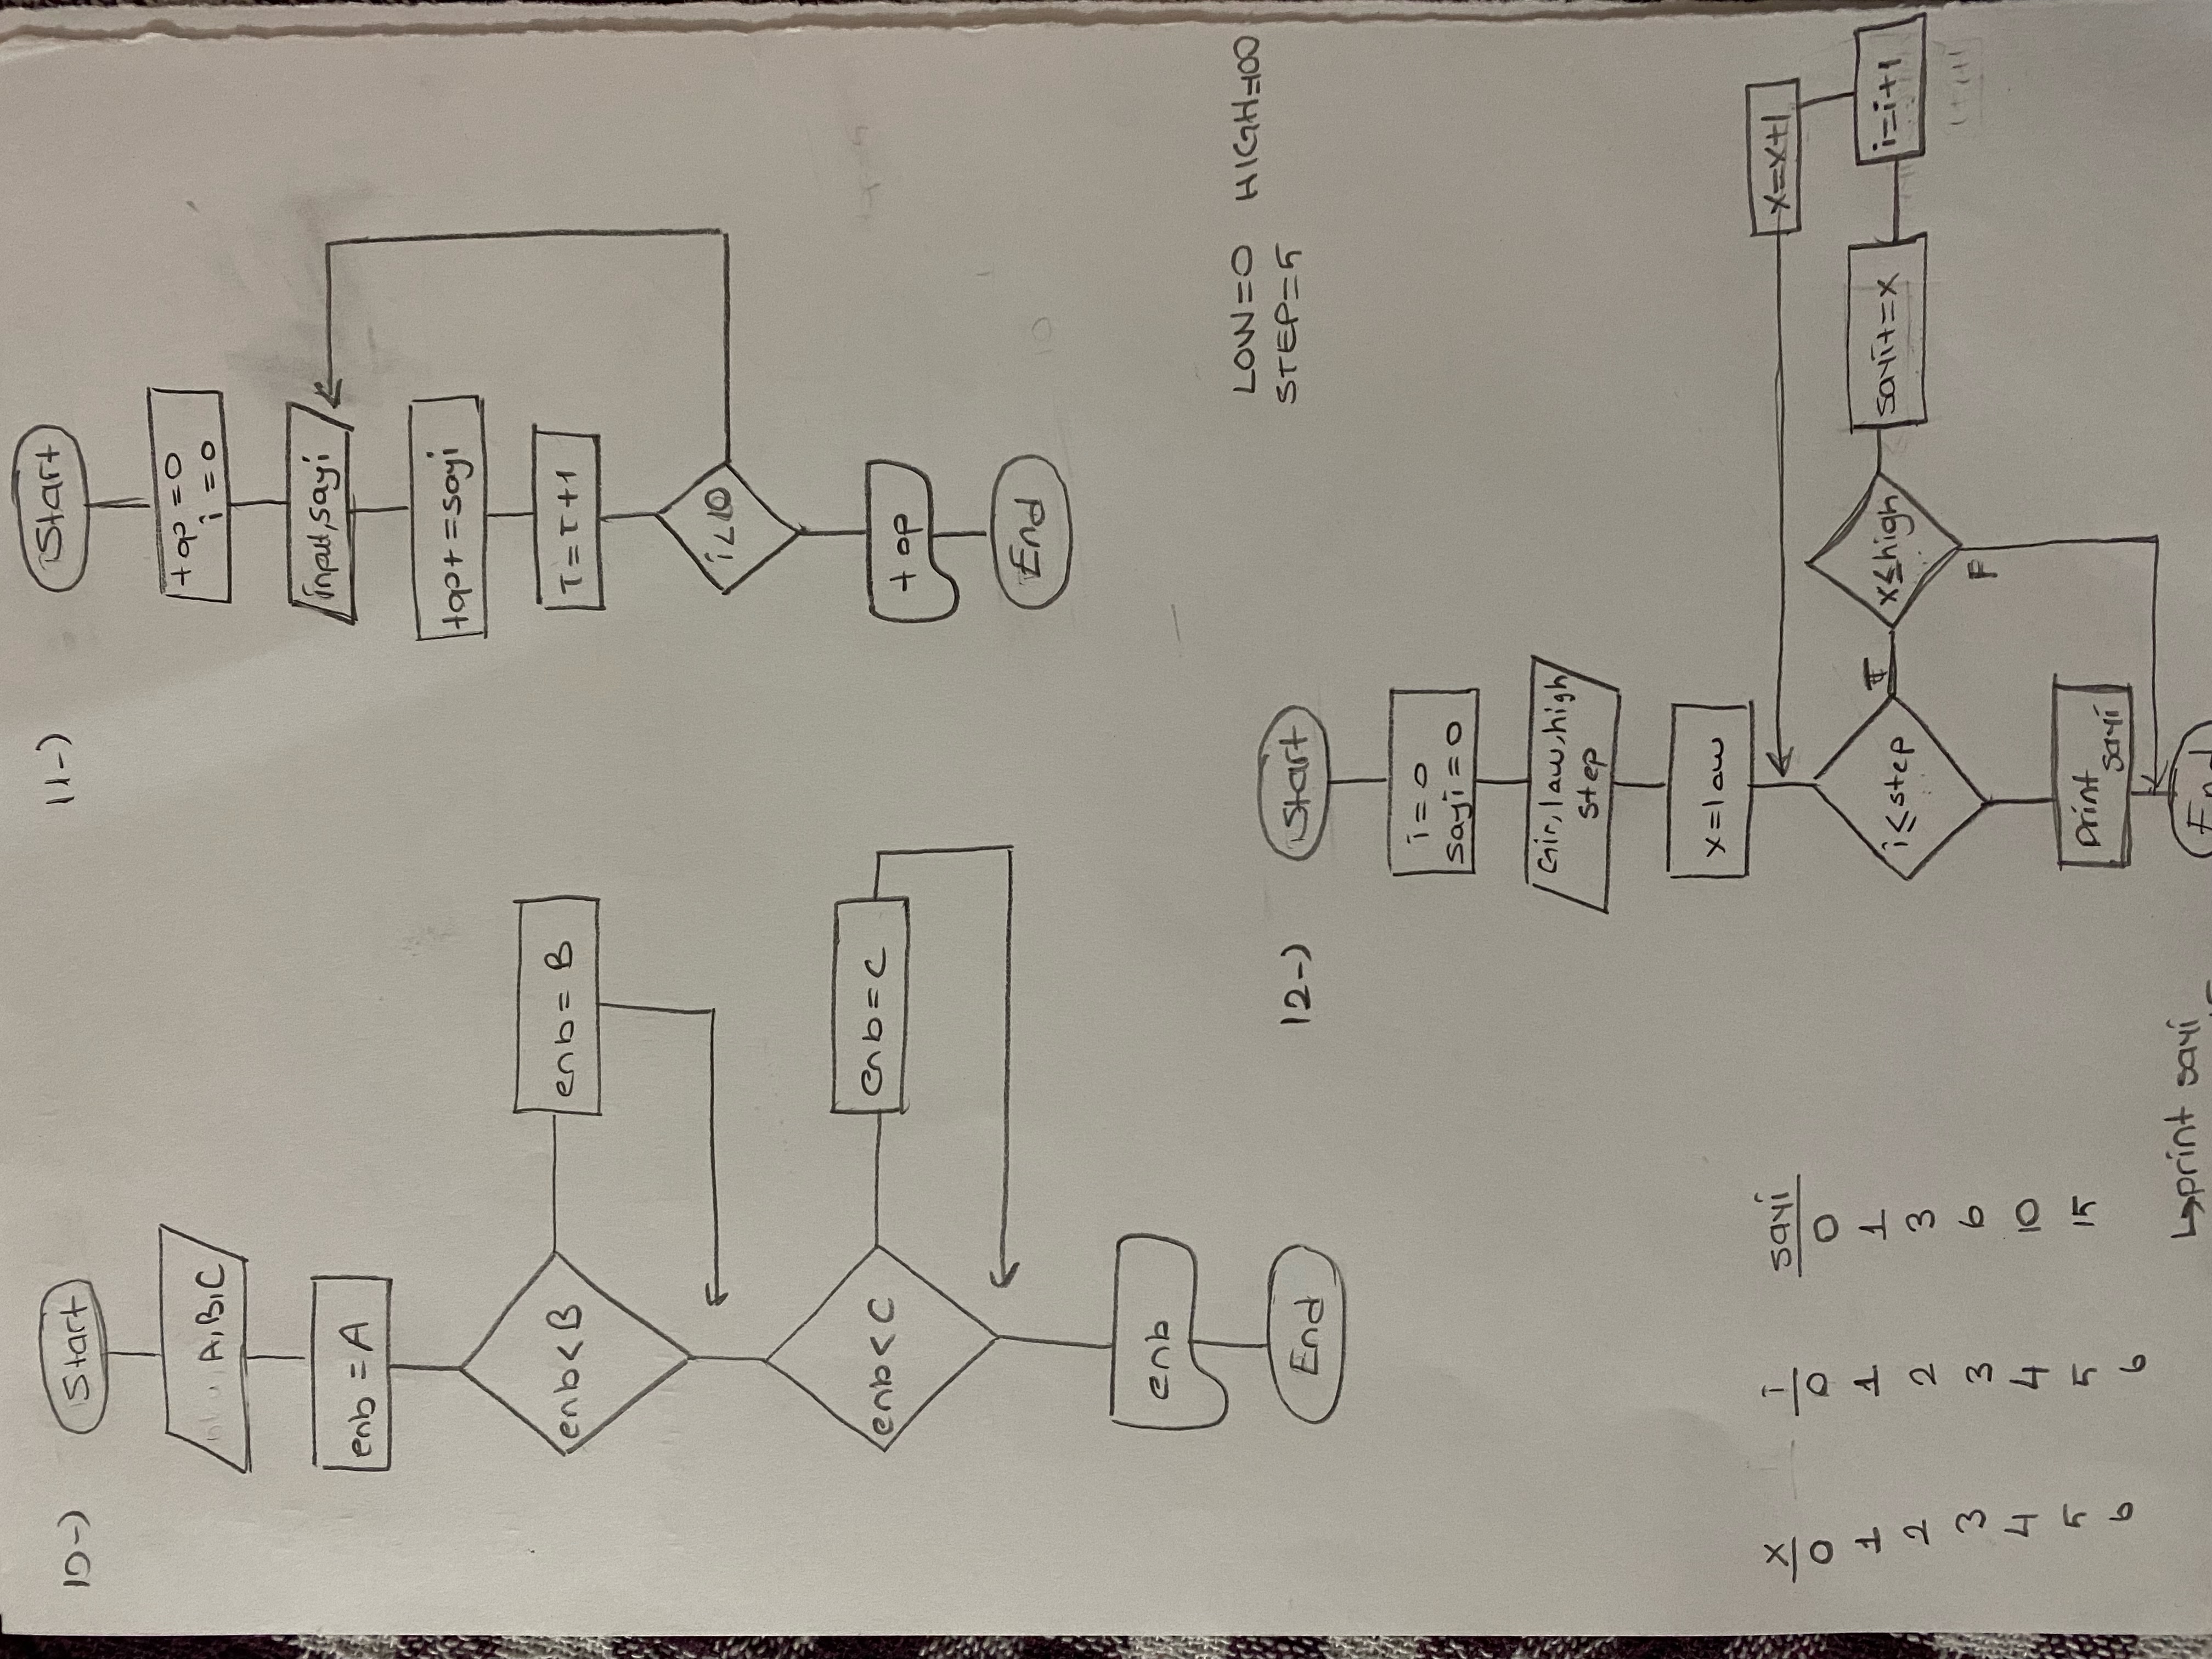 10-)
Start
A,B,C
enb = A
enb < B
enb = B
enb < C
enb = C
enb
End
11-)
Start
top = 0
i = 0
input, sayi
top+ = sayi
i = i + 1
i < 10
top
End
LOW=0 HIGH=100
STEP=5
12-)
Start
i = 0
sayi = 0
Gir, law, high
step
x = law
x=x+1
i ≤ step
T
x ≤ high
sayi+=x
i=i+1
F
print
sayi
End
x i sayi
0 0 0
1 1 1
2 2 3
3 3 6
4 4 10
5 5 15
6 6
↳ print sayi